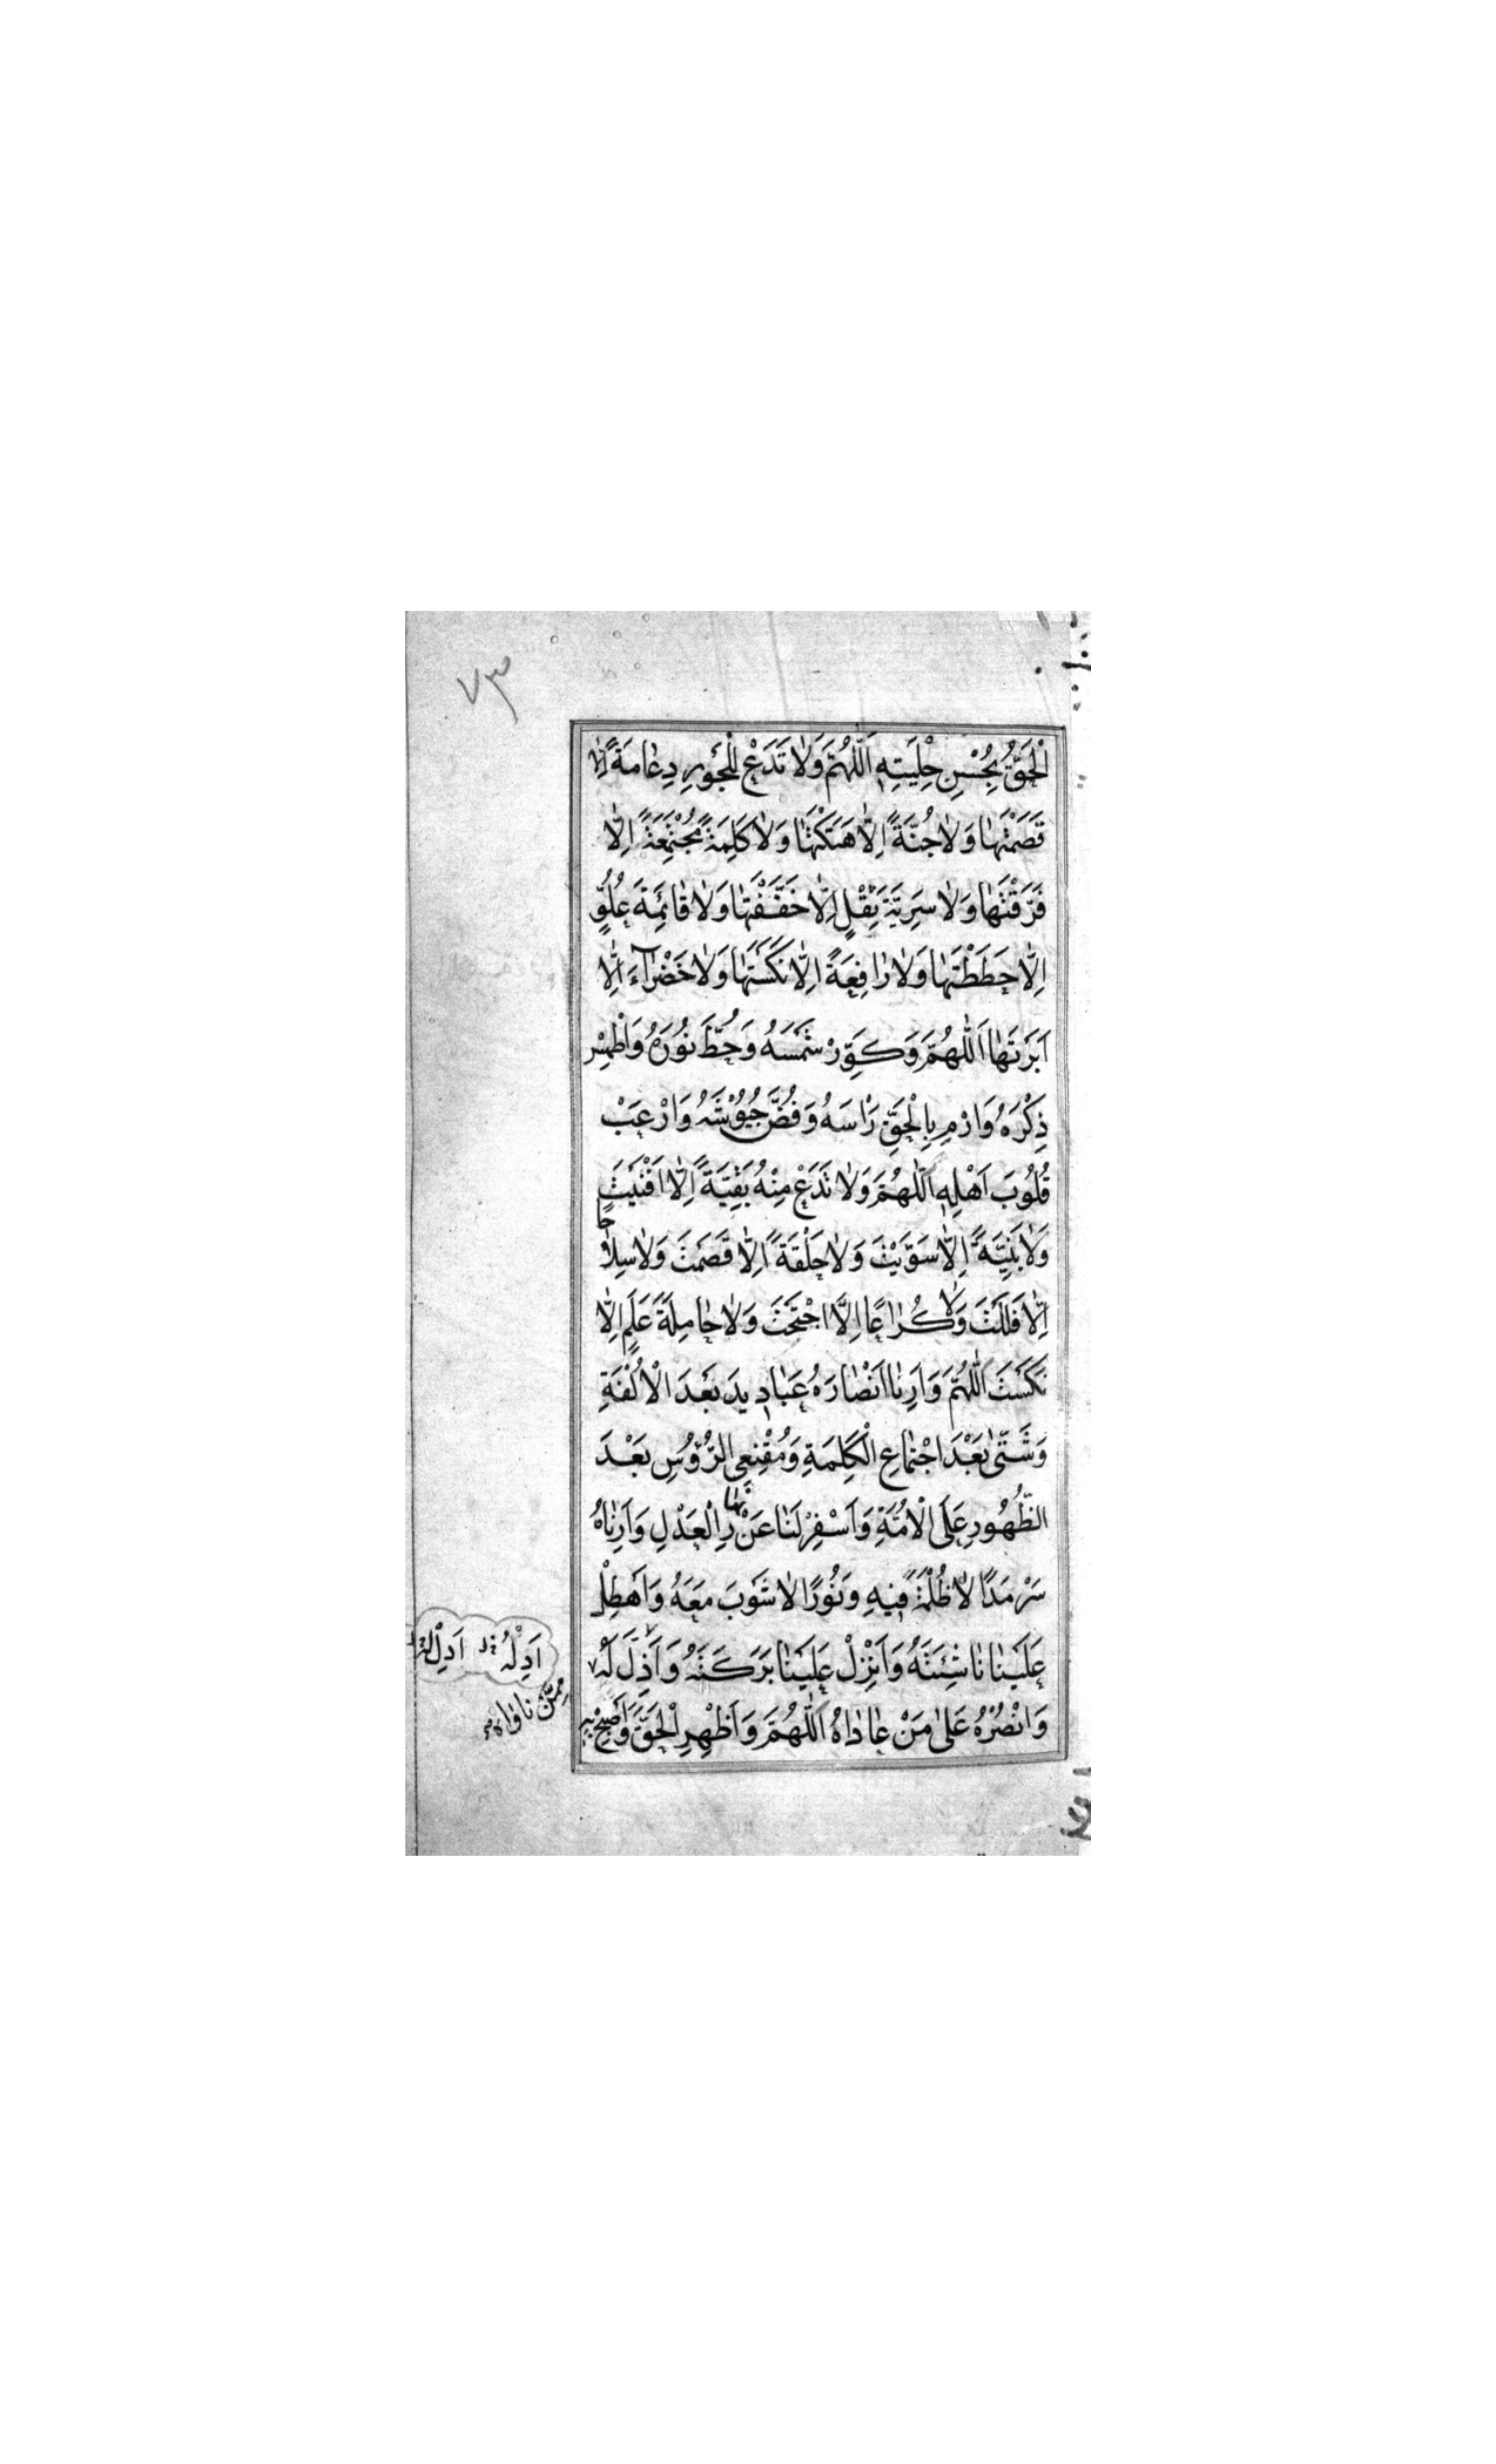 ٧٣
الْحَقُّ بِحُسْنِ حِلْيَتِهِ اَللّٰهُمَّ وَلَا تَدَعْ لِلْجَوْرِ دِعَامَةً اِلَّا
قَصَمْتَهَا وَلَا جُنَّةً اِلَّا هَتَكْتَهَا وَلَا كَلِمَةً مُجْتَمِعَةً اِلَّا
فَرَّقْتَهَا وَلَا سَرِيَّةَ ثِقْلٍ اِلَّا خَفَّفْتَهَا وَلَا قَائِمَةَ عُلُوٍّ
اِلَّا حَطَطْتَهَا وَلَا رَافِعَةً اِلَّا نَكَسْتَهَا وَلَا خَضْرَآءَ اِلَّا
اَبَرْتَهَا اَللّٰهُمَّ وَكَوِّرْ شَمْسَهُ وَحُطَّ نُورَهُ وَاطْمِسْ
ذِكْرَهُ وَارْمِ بِالْحَقِّ رَاْسَهُ وَفُضَّ جُيُوشَهُ وَارْعَبْ
قُلُوبَ اَهْلِهِ اَللّٰهُمَّ وَلَا تَدَعْ مِنْهُ بَقِيَّةً اِلَّا اَفْنَيْتَ
وَلَا بَنِيَّةً اِلَّا سَوَّيْتَ وَلَا حَلْقَةً اِلَّا قَصَمْتَ وَلَا سِلَاحًا
اِلَّا فَلَلْتَ وَلَا كُرَاعًا اِلَّا اجْتَحْتَ وَلَا حَامِلَةَ عَلَمٍ اِلَّا
نَكَسْتَ اَللّٰهُمَّ وَاَرِنَا اَنْصَارَهُ عَبَادِيدَ بَعْدَ الْاُلْفَةِ
وَشَتّٰى بَعْدَ اجْتِمَاعِ الْكَلِمَةِ وَمُقْنِعِى الرُّؤُسِ بَعْدَ
الظُّهُورِ عَلَى الْاُمَّةِ وَاَسْفِرْ لَنَا عَنْ نَهَارِ الْعَدْلِ وَاَرِنَاهُ
سَرْمَدًا لَا ظُلْمَةَ فِيهِ وَنُورًا لَا شَوْبَ مَعَهُ وَاهْطِلْ
عَلَيْنَا نَاشِئَتَهُ وَاَنْزِلْ عَلَيْنَا بَرَكَتَهُ وَاَذِلَّ لَهُ
وَانْصُرْهُ عَلٰى مَنْ عَادَاهُ اَللّٰهُمَّ وَاَظْهِرِ الْحَقَّ وَاَصْبِحْ بِهِ
اَدِلْهُ
مِمَّنْ نَاوَاهُ